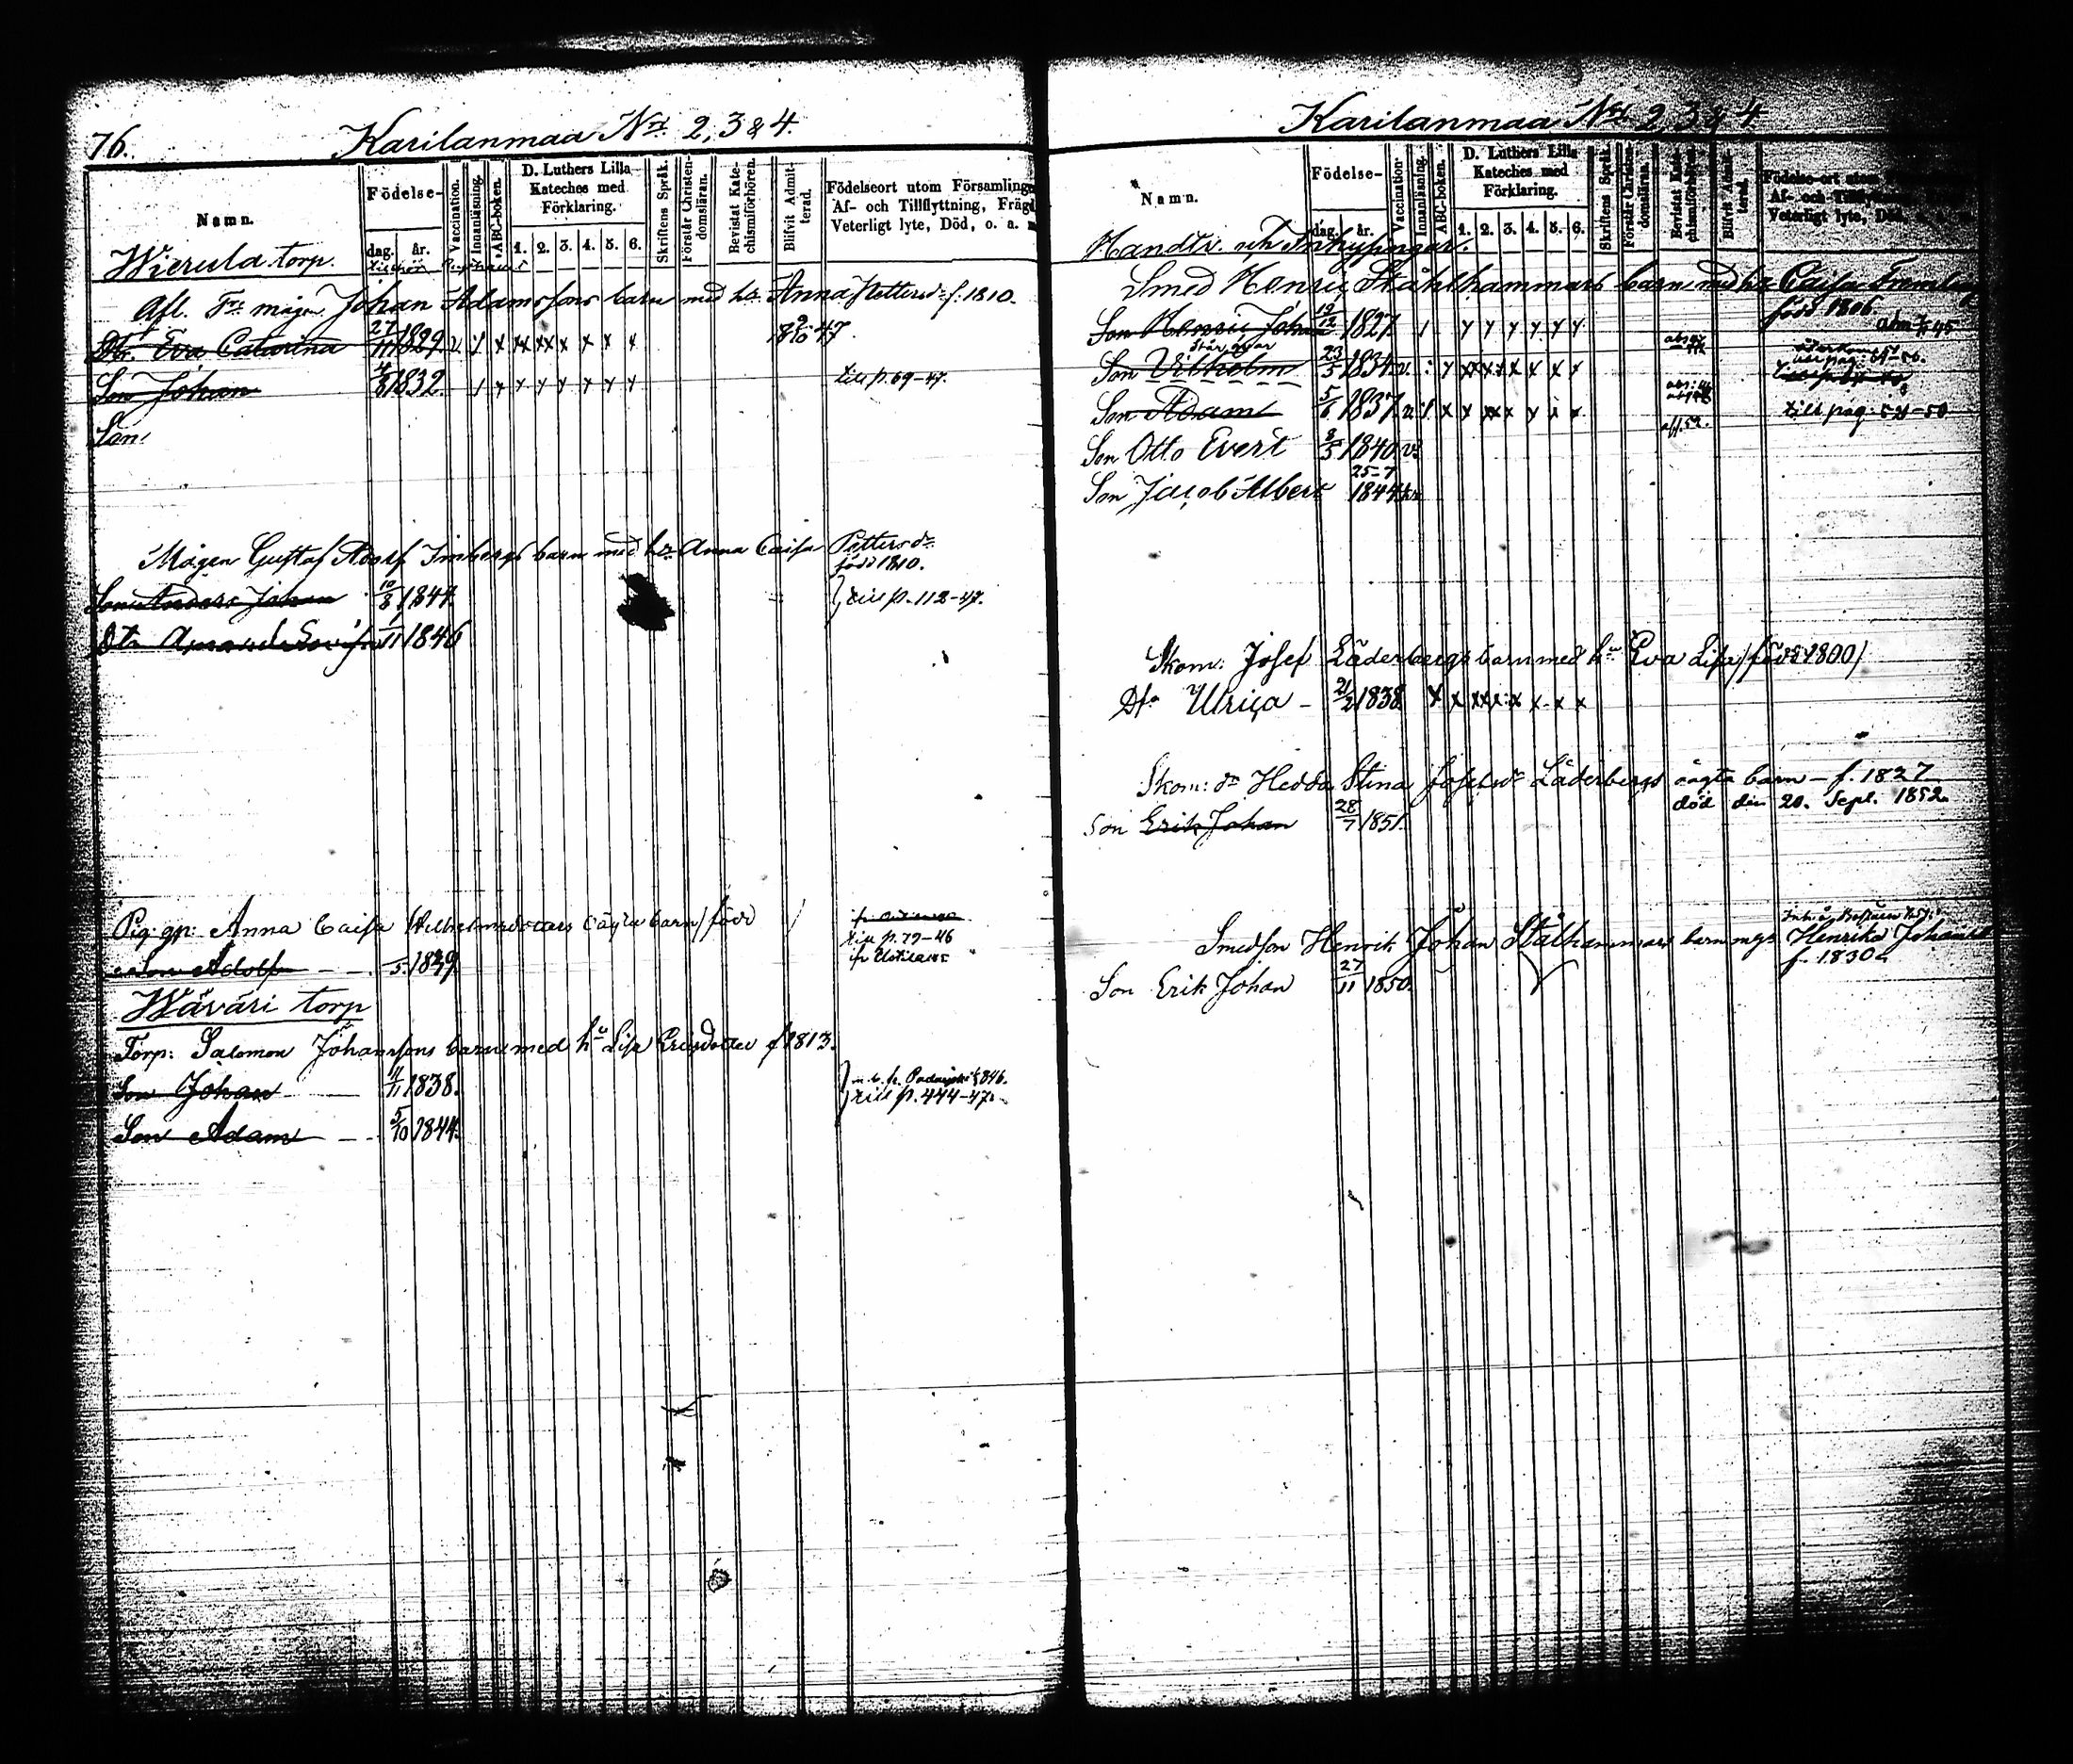 76.
Karilanmaa N:ris 2, 3 & 4.
Namn.
Födelse-
dag. år.
Vaccination.
Innanläsning.
ABC-boken.
D. Luthers Lilla
Kateches med
Förklaring.
1. 2. 3. 4. 5. 6.
Skriftens Språk.
Förstår Christen-
domsläran.
Bevistat Kate-
chismiförhören.
Blifvit Admit-
terad.
Födelseort utom Församlinge
Af- och Tillflyttning, Frägd
Veterligt lyte, Död, o. a. m
Wierula torp.
Afl. måg Johan Adamssons barn med h: Anna Pettersd: f: 1810.
Dtr. Eva Catarina 27/11 1829 v. / x xx xx x x x x 47
Son Johan 1832. / x x y y y y y till p. 69-47.
Son
Mågen Gustaf Adolf barn med h: Anna Caisa Pettersdr
född 1810.
Son Anders Johan 10/8 1844. till p. 112-47.
Dtr Amanda Lovisa 1/11 1846
Pig: Anna Caisa Wilhelmsdotters oägta barn / född
till p. 79-46
Son Adolf /5 1839.
Wäväri torp
Torp: Salomon Johanssons barn med hu Lisa Ericsdotter f 1813.
Son Johan 11/11 1838. 1846.
till p. 444-47.
Son Adam 5/10 1844.
Karilanmaa N:ris 2, 3 & 4
Namn.
Födelse-
dag. år.
Vaccination.
Innanläsning.
ABC-boken.
D. Luthers Lilla
Kateches med
Förklaring.
1. 2. 3. 4. 5. 6.
Skriftens Språk.
Förstår Christen-
domsläran.
Bevistat Kate-
chismiförhören.
Blifvit Admit-
terad.
Födelse-ort utom
Af- och Tillflyttning,
Veterligt lyte, Död,
Handtv. och Inhysingar.
Smed Henric Ståhlhammars barn med h: Caisa
född 1806.
Son Henric Johan 19/12 1827. / y y y y y y 45
Står qvar
Son Vilhelm 23/5 1834 v. : y xx x x x x x
Son Adam 5/6 1837. v. / x x xx x y x x till pag. 54-50
Son Otto Evert 8/5 1840 v:
Son Jacob Albert 25-7 1844.
Skom: Josef Läderbergs barn med hu Eva Lisa /född 1800/
Dtr Ulrica - 21/2 1838. x x xx x x x x x
Skom: dr Hedda Stina Josefsdr Läderbergs oägta barn - f. 1827
död den 20. Sept. 1852.
Son Erik Johan 28/7 1851.
Smedson Henrik Johan Stålhammars barn Henrika
f. 1830.
Son Erik Johan 27/11 1850.